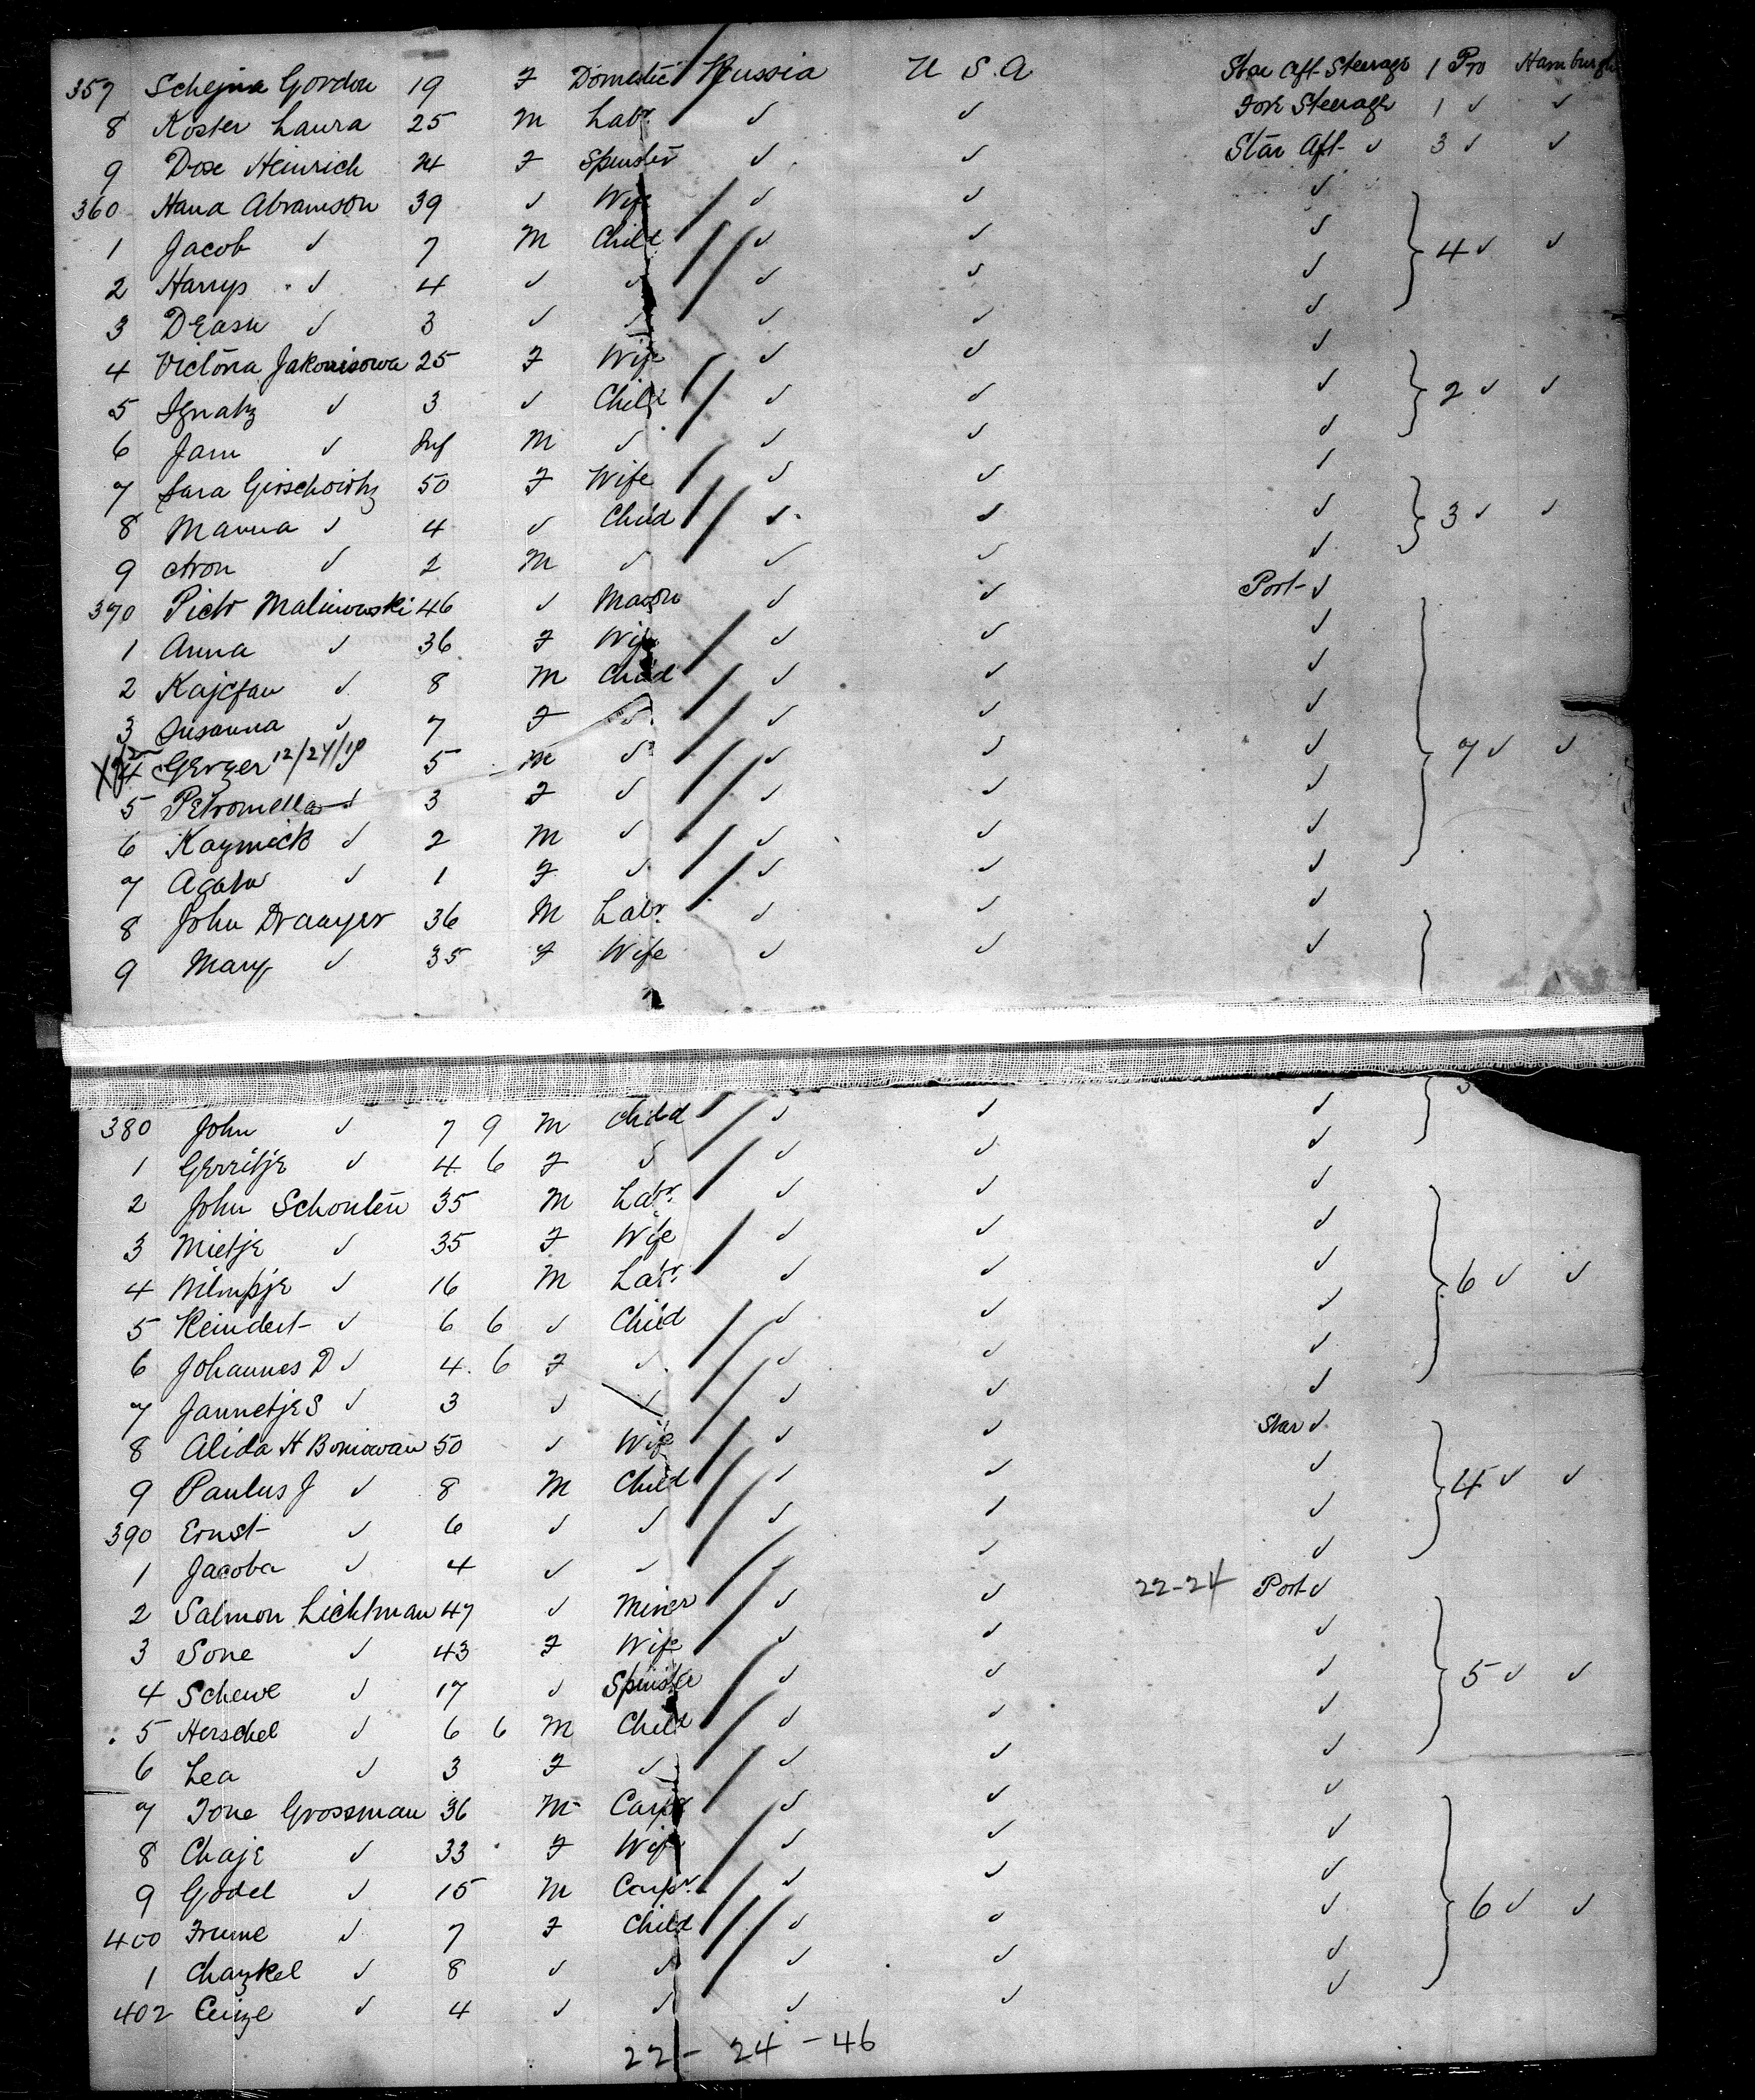 357 Schejna Gordon 19 F Domestic Russia U S.A Star Aft Steerage 1 Pro Hamburgh
8 Koster Laura 25 M Labr ✓ ✓ Fore Steerage 1 ✓ ✓
9 Dose Heinrich 24 F Spinster ✓ ✓ Star Aft ✓ 3 ✓ ✓
360 Hana Abramson 39 ✓ Wife ✓ ✓ ✓
1 Jacob ✓ 7 M Child ✓ ✓ ✓ 4 ✓ ✓
2 Harrys ✓ 4 ✓ ✓ ✓ ✓ ✓
3 DEasu ✓ 3 ✓ ✓ ✓ ✓ ✓
4 Victoria Jakonisowa 25 F Wife ✓ ✓ ✓
5 Ignatz ✓ 3 ✓ Child ✓ ✓ ✓ 2 ✓ ✓
6 Jam ✓ Inf M ✓ ✓ ✓ ✓
7 Sara Girschowitz 50 F Wife ✓ ✓ ✓
8 Manna ✓ 4 ✓ Child ✓ ✓ ✓ 3 ✓ ✓
9 Aron ✓ 2 M ✓ ✓ ✓ ✓
370 Piotr Malinowski 46 ✓ Mason ✓ ✓ Port ✓
1 Anna ✓ 36 F Wife ✓ ✓ ✓
2 Kajcfan ✓ 8 M Child ✓ ✓ ✓
3 Susanna ✓ 7 F ✓ ✓ ✓ ✓
X 4 Gerger 12/24/10 ✓ 5 M ✓ ✓ ✓ ✓ 7 ✓ ✓
5 Petronella ✓ 3 F ✓ ✓ ✓ ✓
6 Kazmick ✓ 2 M ✓ ✓ ✓ ✓
7 Agata ✓ 1 F ✓ ✓ ✓ ✓
8 John Draayer 36 M Labr ✓ ✓ ✓
9 Mary ✓ 35 F Wife ✓ ✓ ✓
380 John ✓ 7 9 M Child ✓ ✓ ✓
1 Gerritje ✓ 4 6 F ✓ ✓ ✓ ✓
2 John Schouten 35 M Labr ✓ ✓ ✓
3 Mietje ✓ 35 F Wife ✓ ✓ ✓
4 Wilmpje ✓ 16 M Labr ✓ ✓ ✓ 6 ✓ ✓
5 Reindert ✓ 6 6 ✓ Child ✓ ✓ ✓
6 Johannes D ✓ 4 6 F ✓ ✓ ✓ ✓
7 Jannetje S ✓ 3 ✓ ✓ ✓ ✓ ✓
8 Alida H Boniowan 50 ✓ Wife ✓ ✓ Star ✓
9 Paulus J ✓ 8 M Child ✓ ✓ ✓ 4 ✓ ✓
390 Ernst ✓ 6 ✓ ✓ ✓ ✓ ✓
1 Jacoba ✓ 4 ✓ ✓ ✓ ✓ ✓
2 Salmon Lichtman 47 ✓ Miner ✓ ✓ 22-24 Port ✓
3 Sone ✓ 43 F Wife ✓ ✓ ✓
4 Schewe ✓ 17 ✓ Spinster ✓ ✓ ✓ 5 ✓ ✓
5 Herschel ✓ 6 6 M Child ✓ ✓ ✓
6 Lea ✓ 3 F ✓ ✓ ✓ ✓
7 Tone Grossman 36 M Carpr ✓ ✓ ✓
8 Chaje ✓ 33 F Wife ✓ ✓ ✓
9 Godel ✓ 15 M Carpr ✓ ✓ ✓
400 Frume ✓ 7 F Child ✓ ✓ ✓ 6 ✓ ✓
1 Chazkel ✓ 8 ✓ ✓ ✓ ✓ ✓
402 Cuize ✓ 4 ✓ ✓ ✓ ✓ ✓
22 - 24 - 46